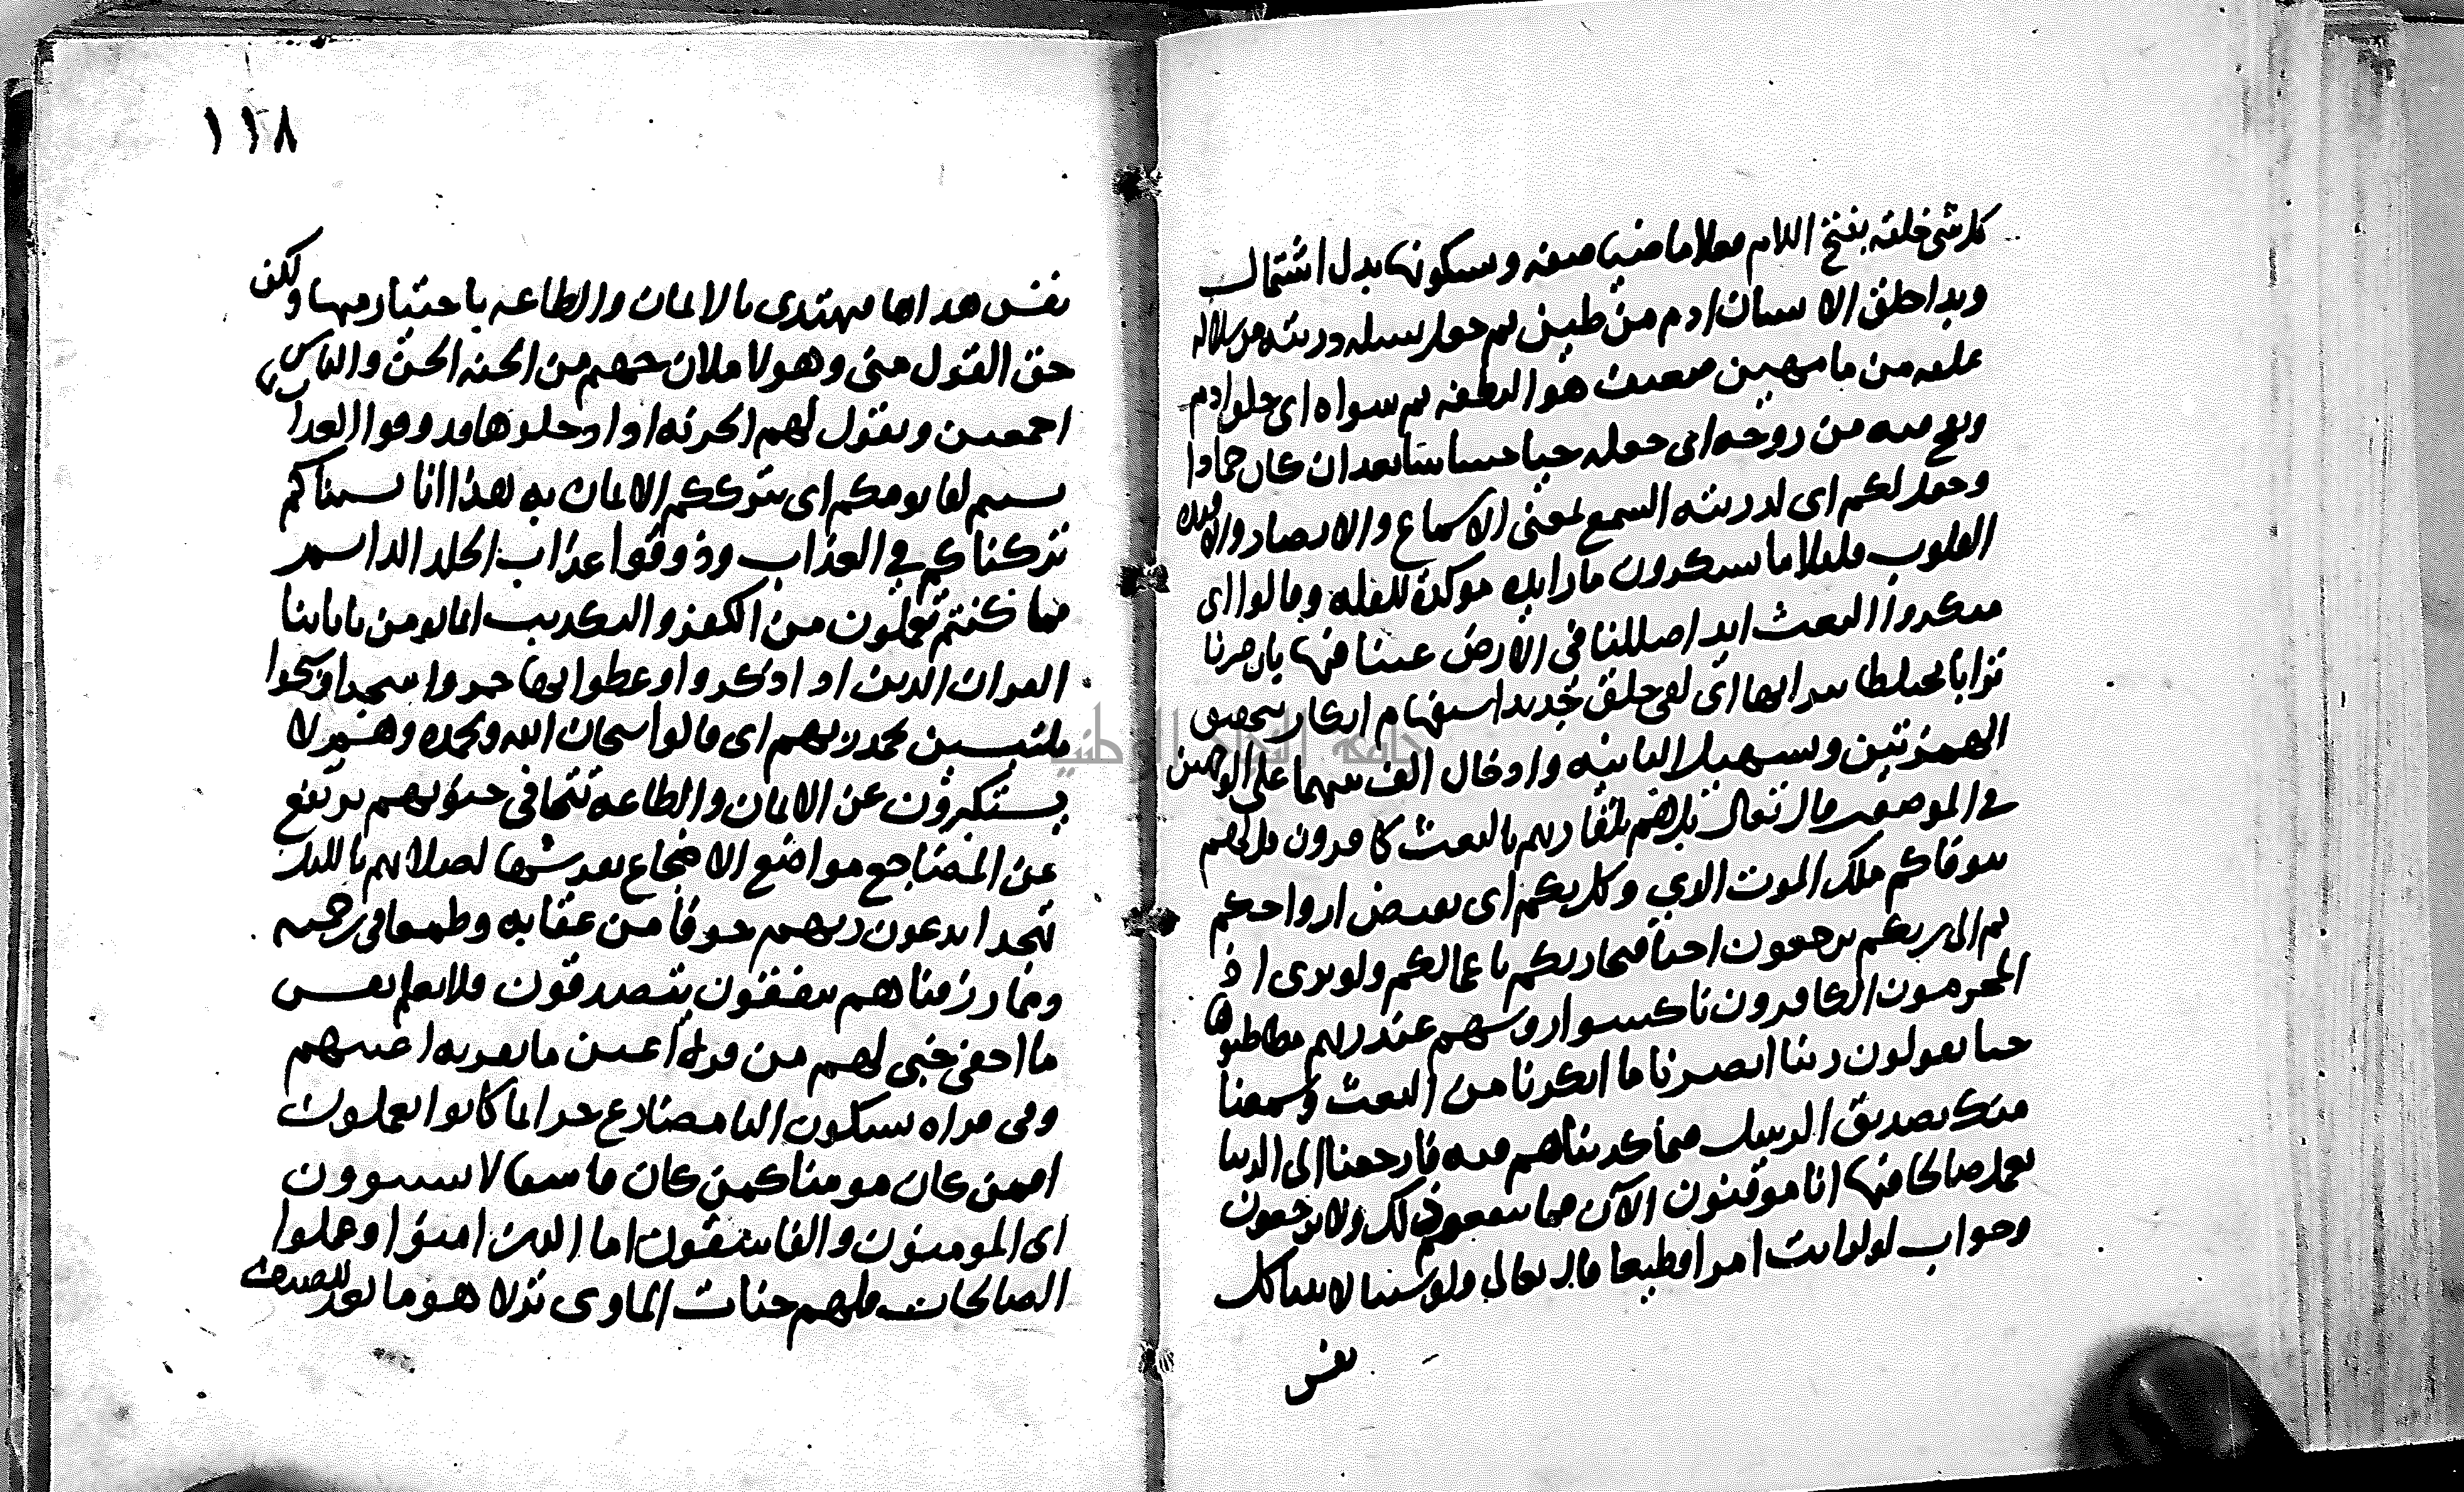 كل شى خلقه بفتح اللام فعلا ماضيا صفه وسكونها بدل اشتمال
وبدا خلق الانسان ادم من طين ثم جعل نسله دريته من سلاله
علقه من ما مهين ضعيف هو النطفه ثم سواه اى خلق ادم
ونفخ فيه من روحه اى جعله حيا حساسا بعد ان كان جمادا
وجعل لكم اى لدريته السمع بمعنى الاسماع والابصار والافيده
القلوب قليلا ما تشكرون ما زايده موكدة للقله وقالوا اى
منكروا البعث ايدا ضللنا فى الارض غبنا فيها بان صرنا
ترابا مختلطا بترابها اى لفى خلق جديد استفهام انكار بتحقيق
الهمزتين وتسهيل الثانيه وادخال الف بينهما على الوجهين
فى الموضعين قال تعالى بل هم بلقا ربهم بالبعث كافرون قل لهم
يتوفاكم ملك الموت الدي وكل بكم اى بقبض ارواحكم
ثم الى ربكم ترجعون احيا فيجازيكم باعمالكم ولو ترى اذ
المجرمون الكافرون ناكسوا روسهم عند ربهم مطاطيوها
حيا يقولون ربنا ابصرنا ما انكرنا من البعث وسمعنا
منك تصديق الرسل فيما كدبناهم فيه فارجعنا الى الدنيا
نعمل صالحا فيها انا موقنون الآن فما ينفعهم ذلك ولا يرجعون
وجواب لو لرايت امرا فظيعا قال تعالى ولو شينا لاتينا كل
نفس
١١٨
نفس هداها فتهتدى بالايمان والطاعه باختيار منها ولكن
حق القول منى وهو لاملان جهنم من الجنه الجن والناس
اجمعين وتقول لهم الخزنه ادا دخلوها فدوقوا العداب بما
نسيتم لقا يومكم هذا اى بترككم الايمان به انا نسيناكم
تركناكم في العذاب وذوقوا عذاب الخلد الدايم
بما كنتم تعملون من الكفر والتكديب انما يومن باياتنا
القران الدين ادا ذكروا وعظوا بها خروا سجدا وسبحوا
ملتبسين بحمد ربهم اى قالوا سبحان الله وبحمده وهم لا
يستكبرون عن الايمان والطاعه تتجافى جنوبهم ترتفع
عن المضاجع مواضع الاضجاع بفرشها لصلاتهم بالليل
تهجدا يدعون ربهم خوفا من عقابه وطمعا فى رحمته
ومما رزقناهم ينفقون يتصدقون فلا تعلم نفس
ما اخفى خبى لهم من قرة اعين ما تقر به اعينهم
وفى قراه بسكون اليا مضارع جزا بما كانوا يعملون
افمن كان مومنا كمن كان فاسقا لا يستوون
اى المومنون والفاسقون اما الدين امنوا وعملوا
الصالحات فلهم جنات الماوى نزلا هو ما يعد للضيف